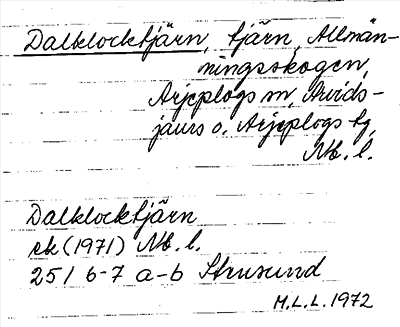 Dalklocktjärn, tjärn, Allmän-
ningsskogen,
Arjeplogs sn, Arvids-
jaurs o. Arjeplogs tg,
Nb. l.
Dalklocktjärn
ek (1971) Nb. l.
25 I 6-7 a-b Strusund
M.L.L. 1972